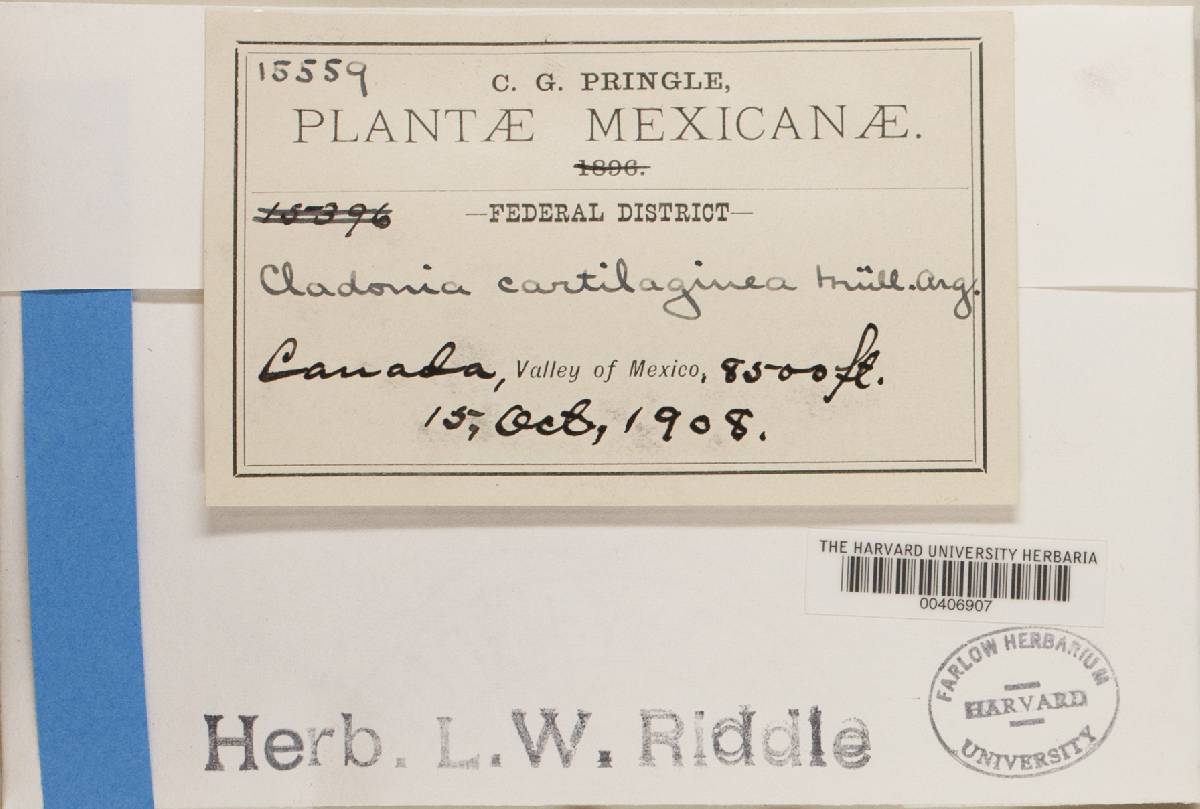 15559
C. G. PRINGLE,
PLANTÆ MEXICANÆ.
1896.
15396
—FEDERAL DISTRICT—
Cladonia cartilaginea Müll. Arg.
Canada, Valley of Mexico, 8500 ft.
15, Oct, 1908.
THE HARVARD UNIVERSITY HERBARIA
00406907
FARLOW HERBARIUM
HARVARD
UNIVERSITY
Herb. L. W. Riddle